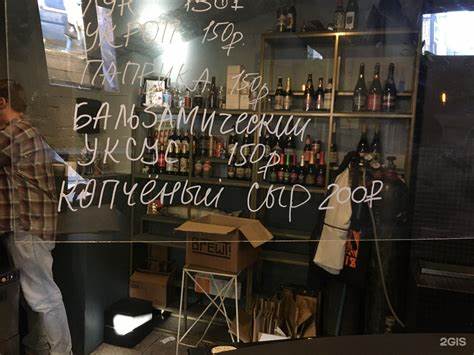 ЛУК 150₽
УКРОП 150₽.
ПАПРИКА 150₽.
БАЛЬЗАМИЧЕСКИЙ
УКСУС 150₽.
КОПЧЁНЫЙ СЫР 200₽
BREW!
2GIS